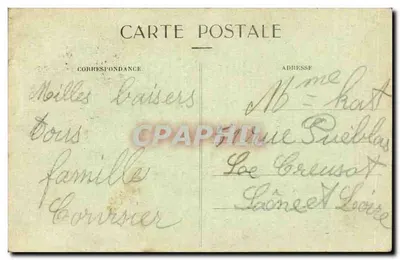 CARTE POSTALE
CORRESPONDANCE
ADRESSE
Milles baisers
tous
famille
Coursier
Mme
Rue Puéblas
Le Creusot
Saône et Loire
CPAPHIL